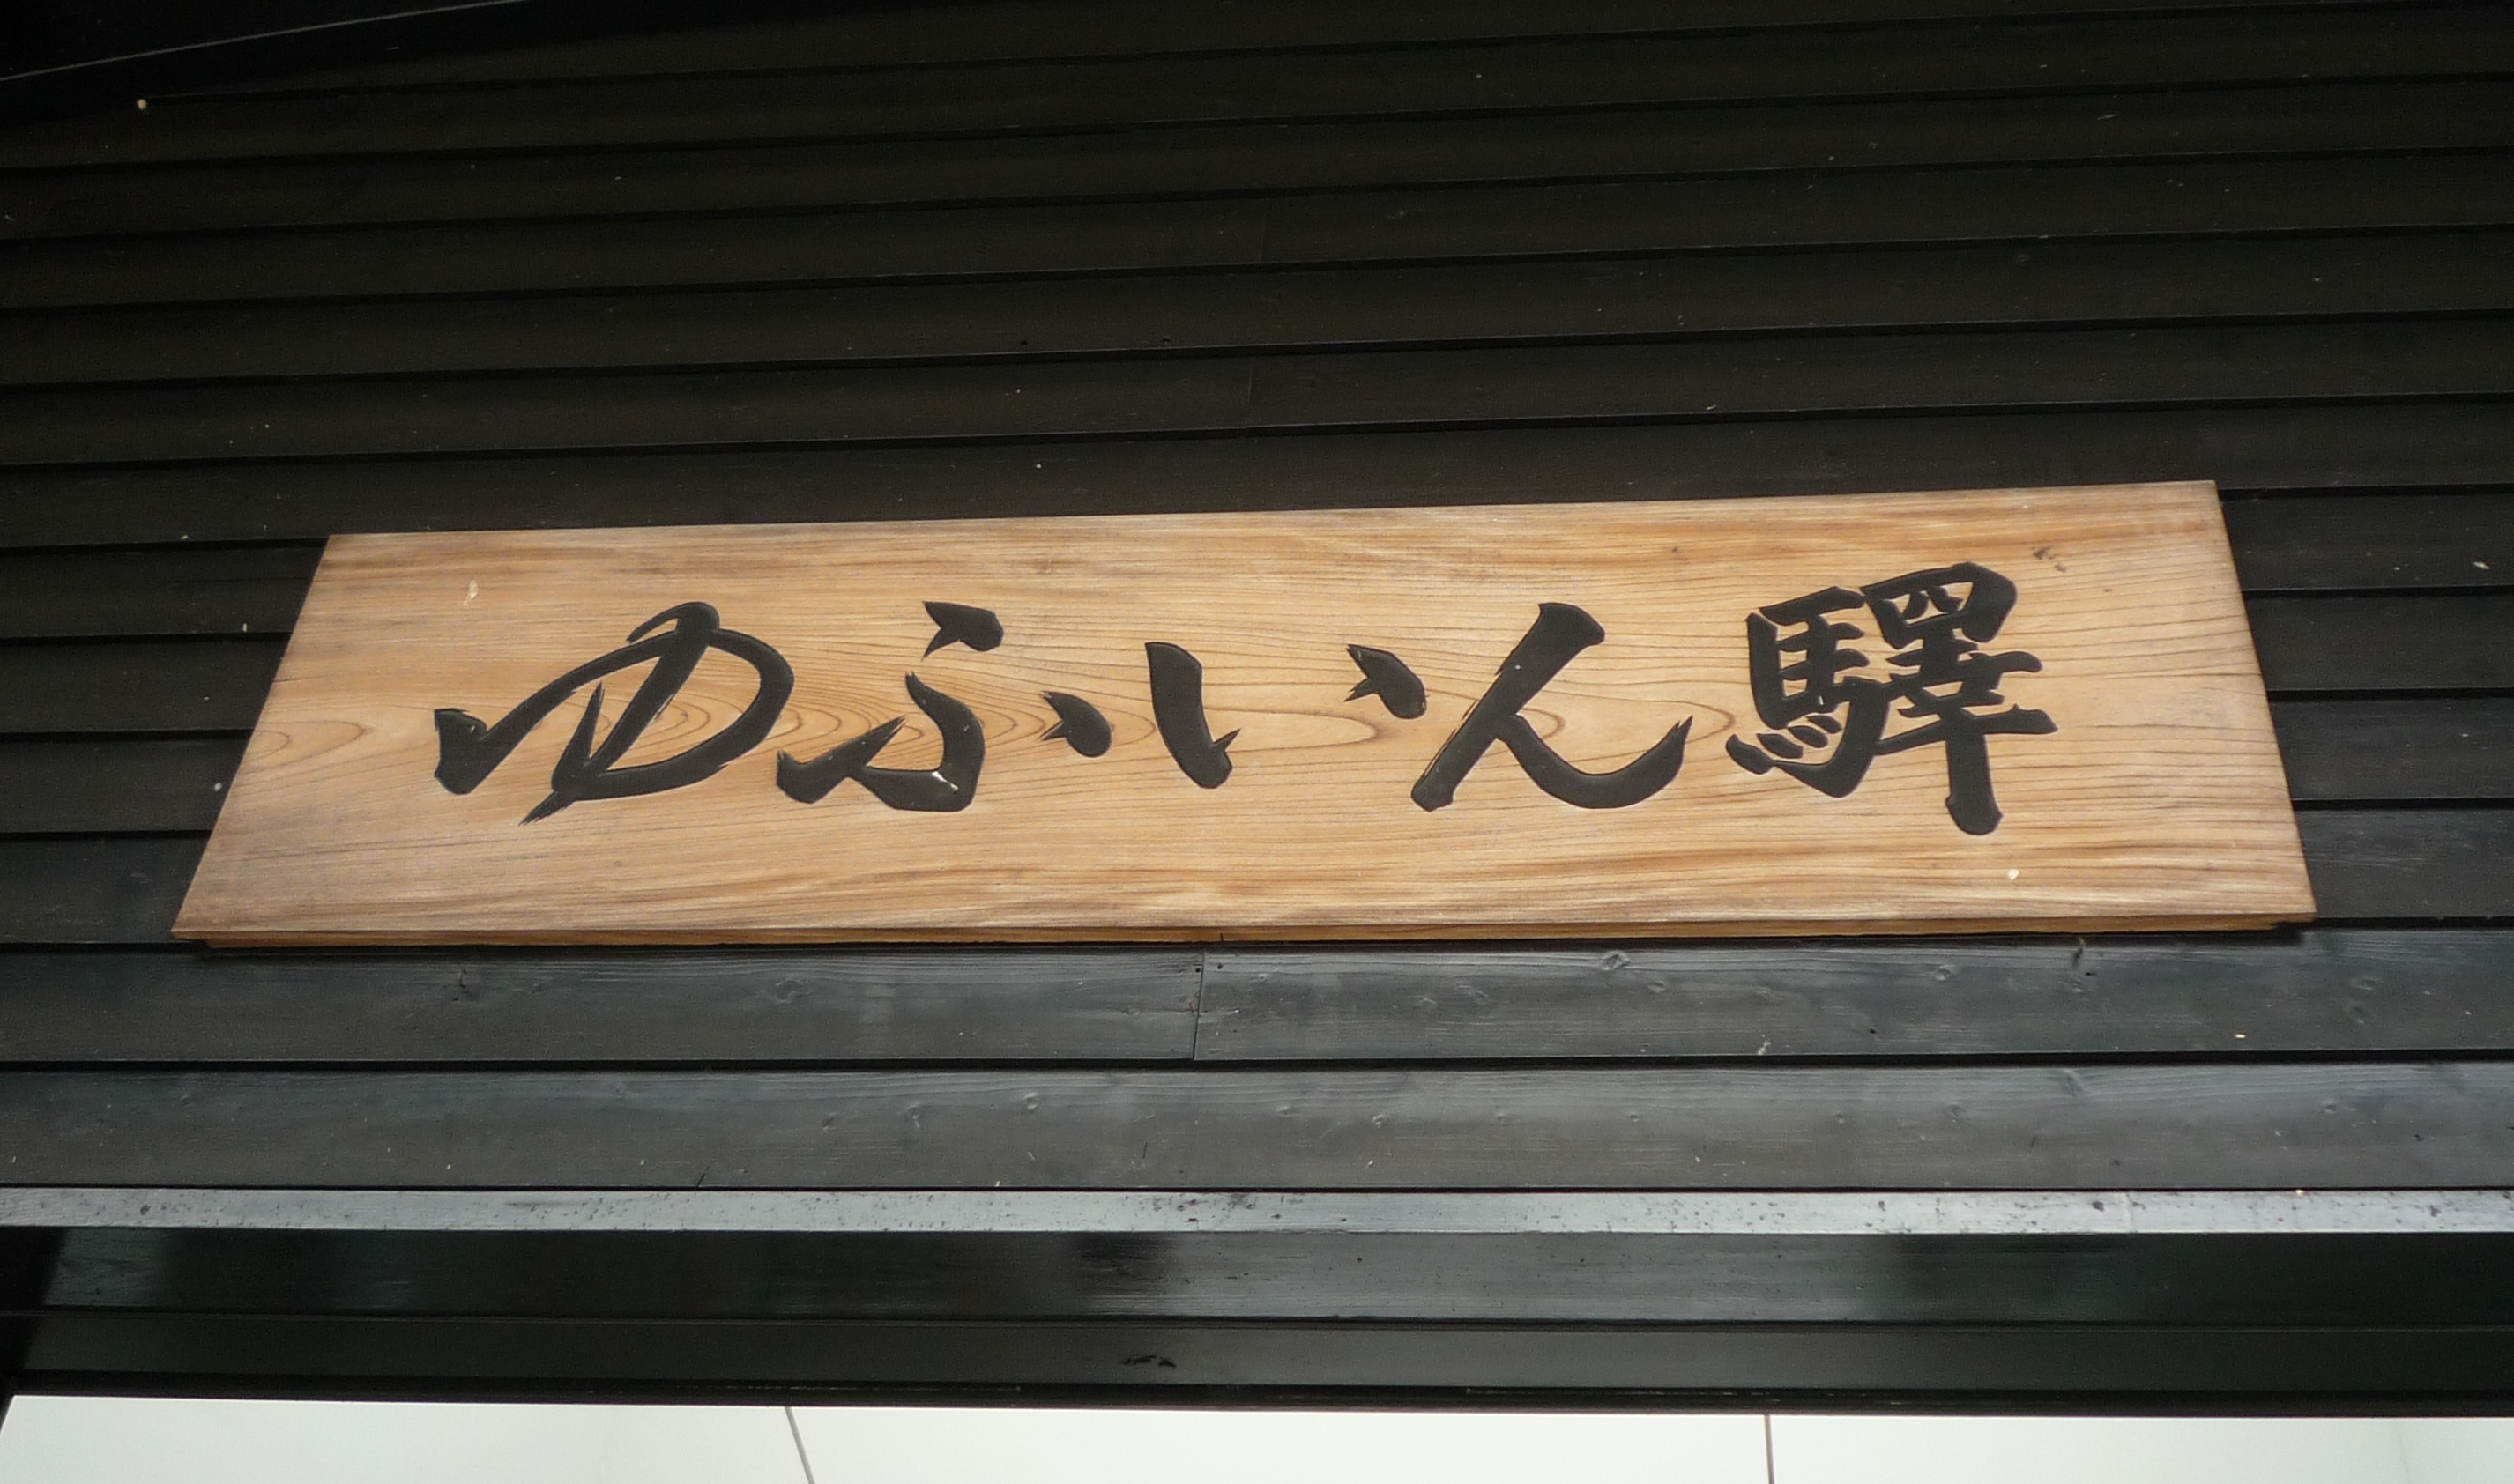 ゆふいん驛